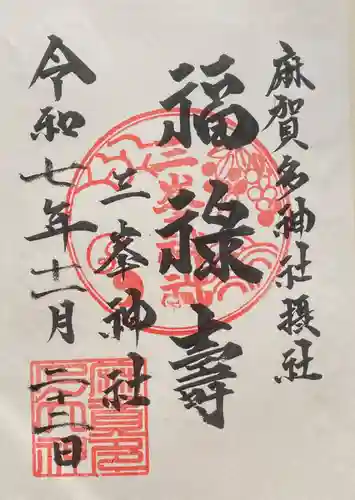 麻賀多神社摂社
福禄壽
三峯神社
令和七年十一月
二十二日
三峯神社